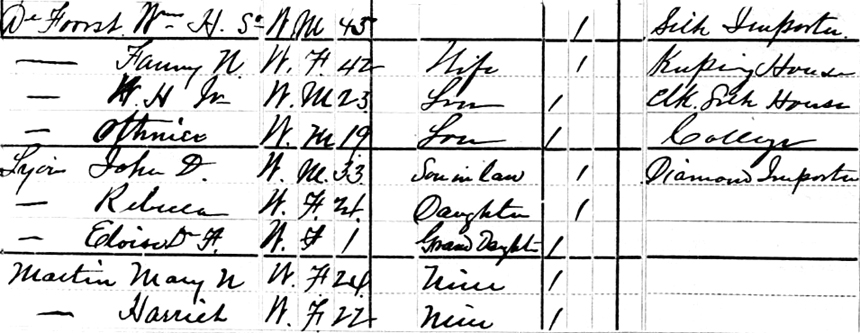 De Forrst Wm H. Sr W M 43 / Silk Importer
— Fanny N W. F 42 Wife / Keeping House
— W. H Jr W. M 23 Son / Clk. Silk House
— Othniel W. M 19 Son / College
Lyon John D. W. M. 33 Son in law / Diamond Importer
— Rebecca W. F 21 Daughter /
— Eloise De F. W. F 1 Grand Daught /
Martin Mary N W. F 24 Niece /
— Harriet W. F. 22 Niece /